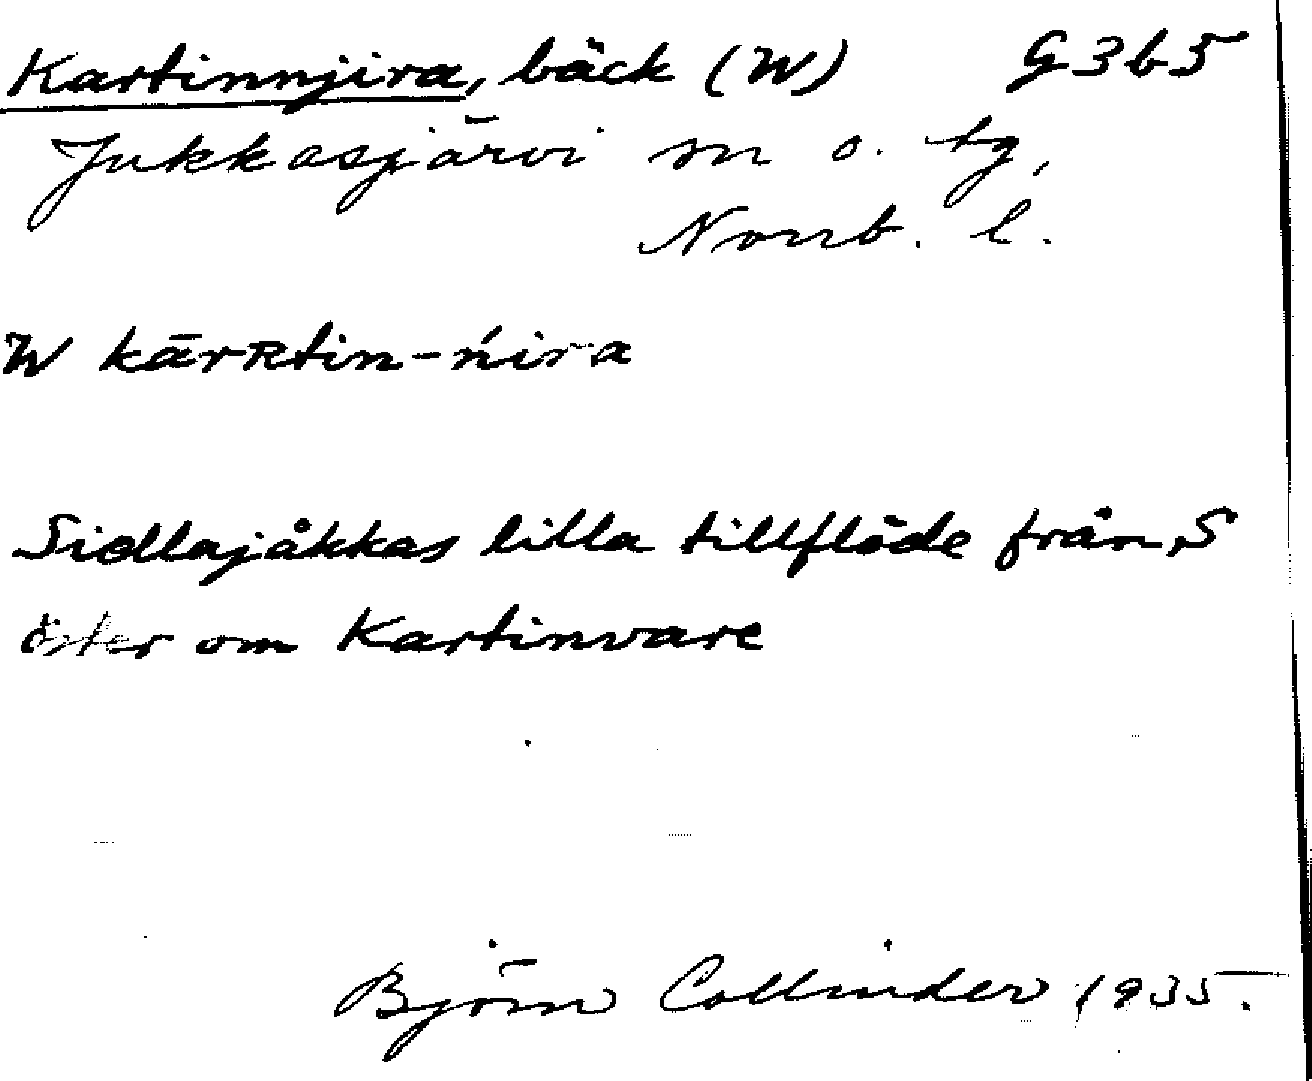 Kartinnjira, bäck (W) G3b5
Jukkasjärvi sn o. tg,
Norrb. l.
W kārʀtin-ńira
Siellajåkkas lilla tillflöde från S
öster om Kartinvare
Björn Collinder 1935.